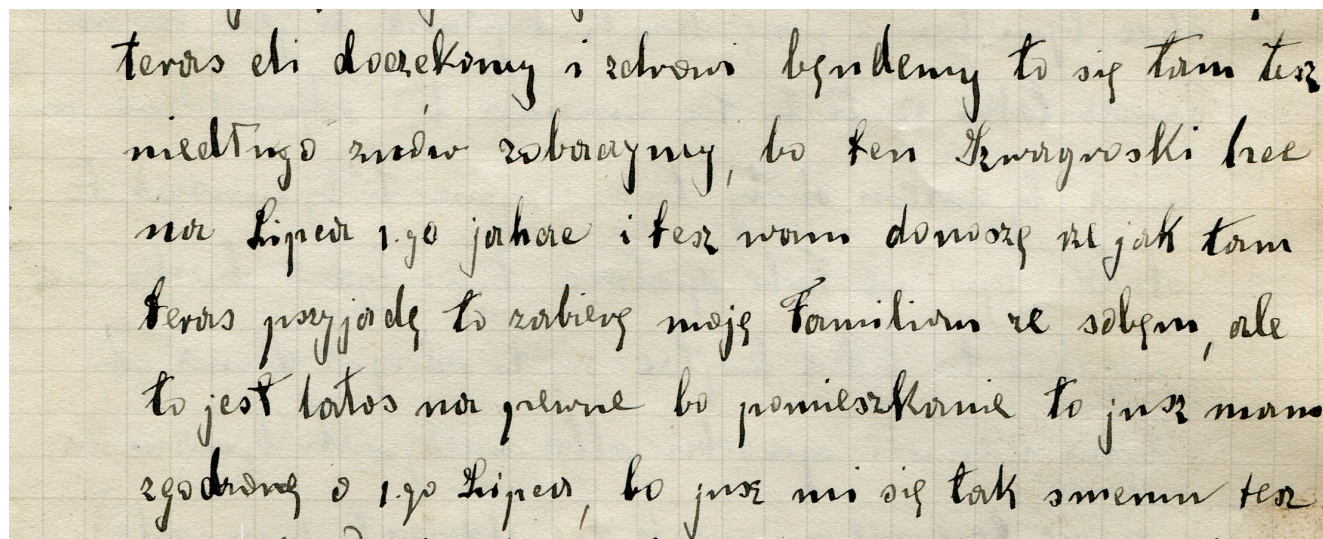 teras eli doczekomy i zdrowi byndemy to się tam tesz
niedługo znów zobaczymy, bo ten Szwagroski hce
na Lipca 1.go jahac i tesz wam donoszę ze jak tam
teras pszyjadę to zabierę moję Familiam ze sobym, ale
to jest latos na pewne bo pomieszkanie to jusz mam
zgodzonę o 1.go Lipca, bo jusz mi się tak samemu tesz